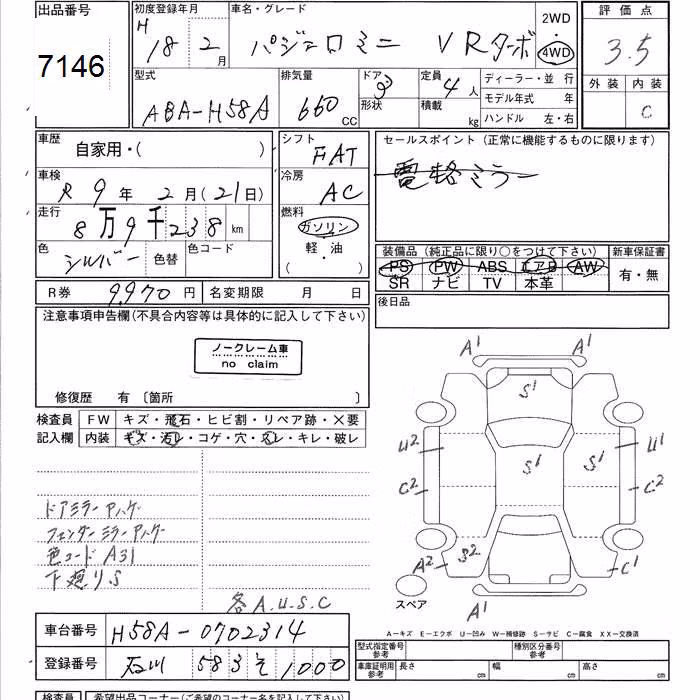 出品番号
7146
初度登録年月
H 18 2月
車名・グレード
パジェロミニ VRターボ
2WD
4WD
評価点
3.5
外装 内装
C
型式
ABA-H58A
排気量
660 CC
ドア
3
形状
定員
4人
積載
kg
ディーラー・並 行
モデル年式 年
ハンドル 左・右
車歴
自家用・( )
シフト
FAT
車検
R 9年 2月(21日)
冷房
AC
走行
8万9千238 km
燃料
ガソリン
軽・油
( )
色
シルバー
色替
色コード
R券 9970円
名変期限 月 日
セールスポイント (正常に機能するものに限ります)
電格ミラー
装備品 (純正品に限り○をつけて下さい)
PS PW ABS エアB AW
SR ナビ TV 本革
新車保証書
有・無
後日品
注意事項申告欄(不具合内容等は具体的に記入して下さい)
ノークレーム車
no claim
修復歴 有 〔箇所 〕
検査員
記入欄
FW キズ・飛石・ヒビ割・リペア跡・×要
内装 キズ・汚レ・コゲ・穴・スレ・キレ・破レ
ドアミラー
フェンダーミラー
色コード A31
下廻りS
各A.U.S.C
A1 A1
S1
U2 U1
S1 S1
C2 C2
A2 S2 C1
A1
スペア
A—キズ E—エクボ U—凹み W—補修跡 S—サビ C—腐食 XX—交換済
車台番号 H58A-0702314
登録番号 石川 583 そ 1000
型式指定番号
参考
種別区分番号
参考
車庫証明用
参考
長さ cm 幅 cm 高さ cm
検査員
希望出品コーナー(ご希望のコーナー名を記入下さい)